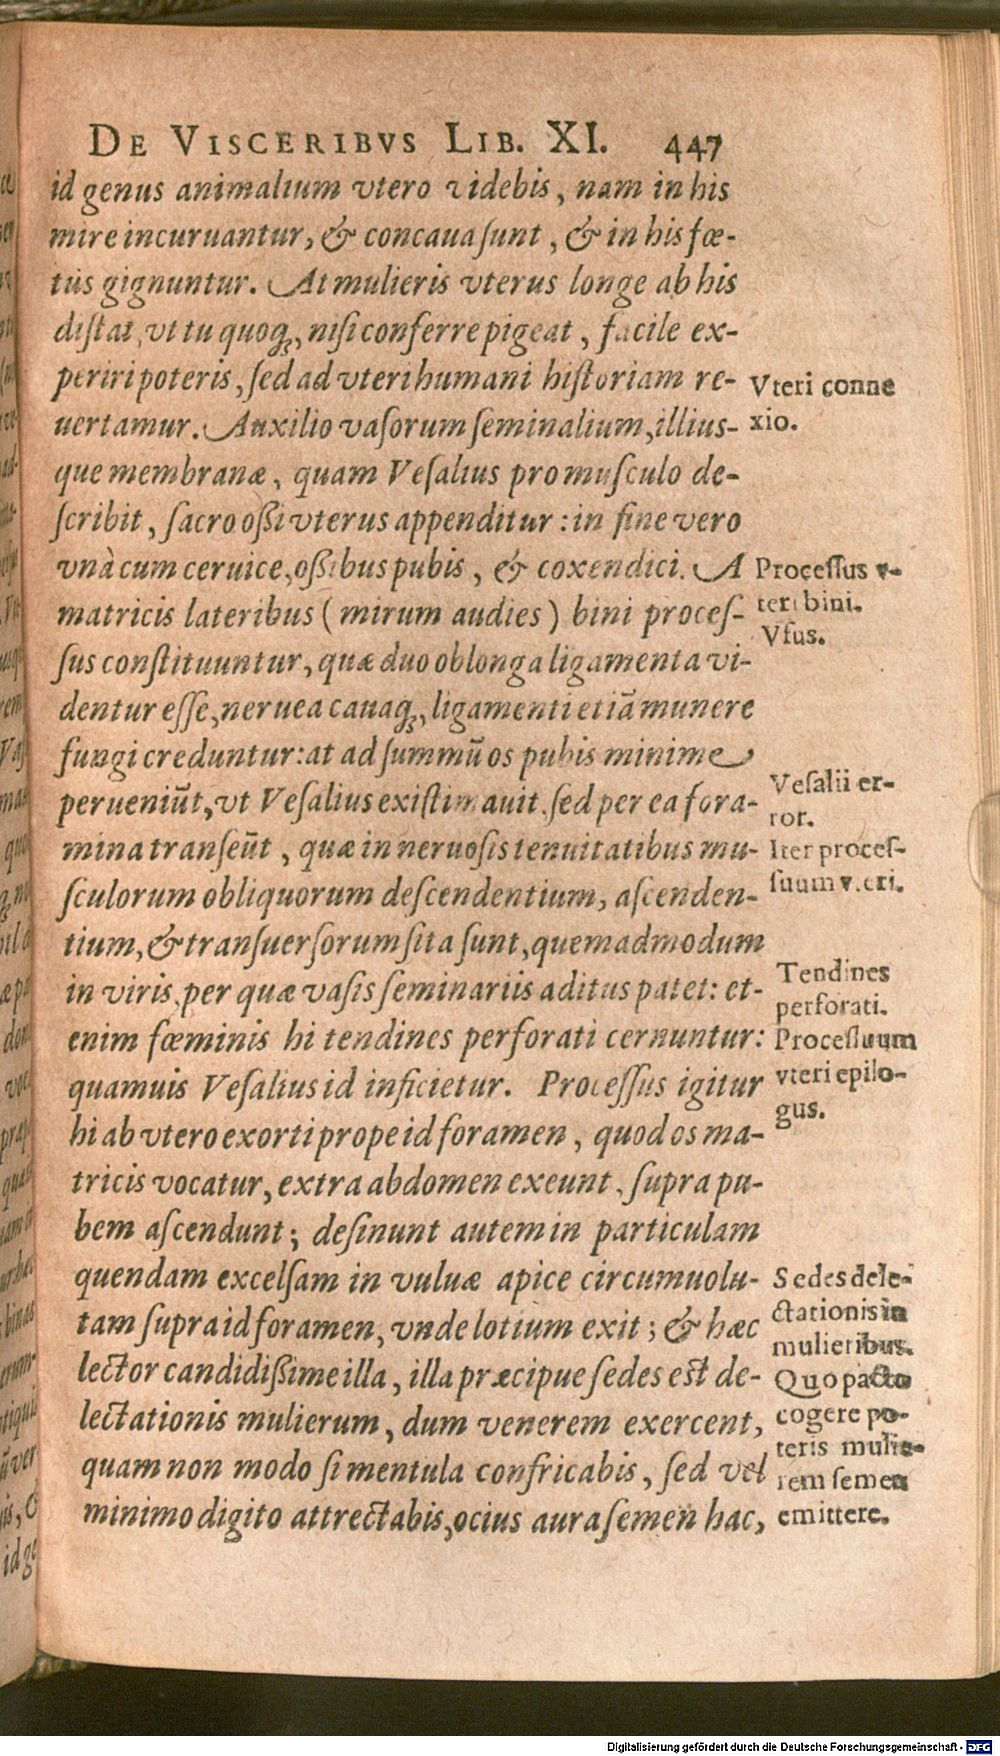 DE VISCERIBVS LIB. XI. 447
id genus animalium vtero videbis, nam in his
mire incuruantur, & concaua sunt, & in his fœ-
tus gignuntur. At mulieris vterus longe ab his
distat, vt tu quoq;, nisi conferre pigeat, facile ex-
periri poteris, sed ad vteri humani historiam re-
uertamur. Auxilio vasorum seminalium, illius-
que membranæ, quam Vesalius pro musculo de-
scribit, sacro oßi vterus appenditur: in fine vero
vnà cum ceruice, oßibus pubis, & coxendici. A
matricis lateribus (mirum audies) bini proces-
sus constituuntur, quæ duo oblonga ligamenta vi-
dentur esse, neruea cauaq;, ligamenti etiã munere
fungi creduntur: at ad summũ os pubis minime
perueniũt, vt Vesalius existimauit, sed per ea fora-
mina transeũt, quæ in neruosis tenuitatibus mu-
sculorum obliquorum descendentium, ascenden-
tium, & transuersorum sita sunt, quemadmodum
in viris, per quæ vasis seminariis aditus patet: et-
enim fœminis hi tendines perforati cernuntur:
quamuis Vesalius id inficietur. Processus igitur
hi ab vtero exorti prope id foramen, quod os ma-
tricis vocatur, extra abdomen exeunt, supra pu-
bem ascendunt; desinunt autem in particulam
quendam excelsam in vuluæ apice circumuolu-
tam supra id foramen, vnde lotium exit; & hæc
lector candidißime illa, illa præcipue sedes est de-
lectationis mulierum, dum venerem exercent,
quam non modo si mentula confricabis, sed vel
minimo digito attrectabis, ocius aura semen hac,
Vteri conne
xio.
Processus v-
teri bini.
Vsus.
Vesalii er-
ror.
Iter proces-
suum vteri.
Tendines
perforati.
Processuum
vteri epilo-
gus.
Sedes dele-
ctationis in
mulieribus.
Quo pacto
cogere po-
teris mulie-
rem semen
emittere.
Digitalisierung gefördert durch die Deutsche Forschungsgemeinschaft - DFG